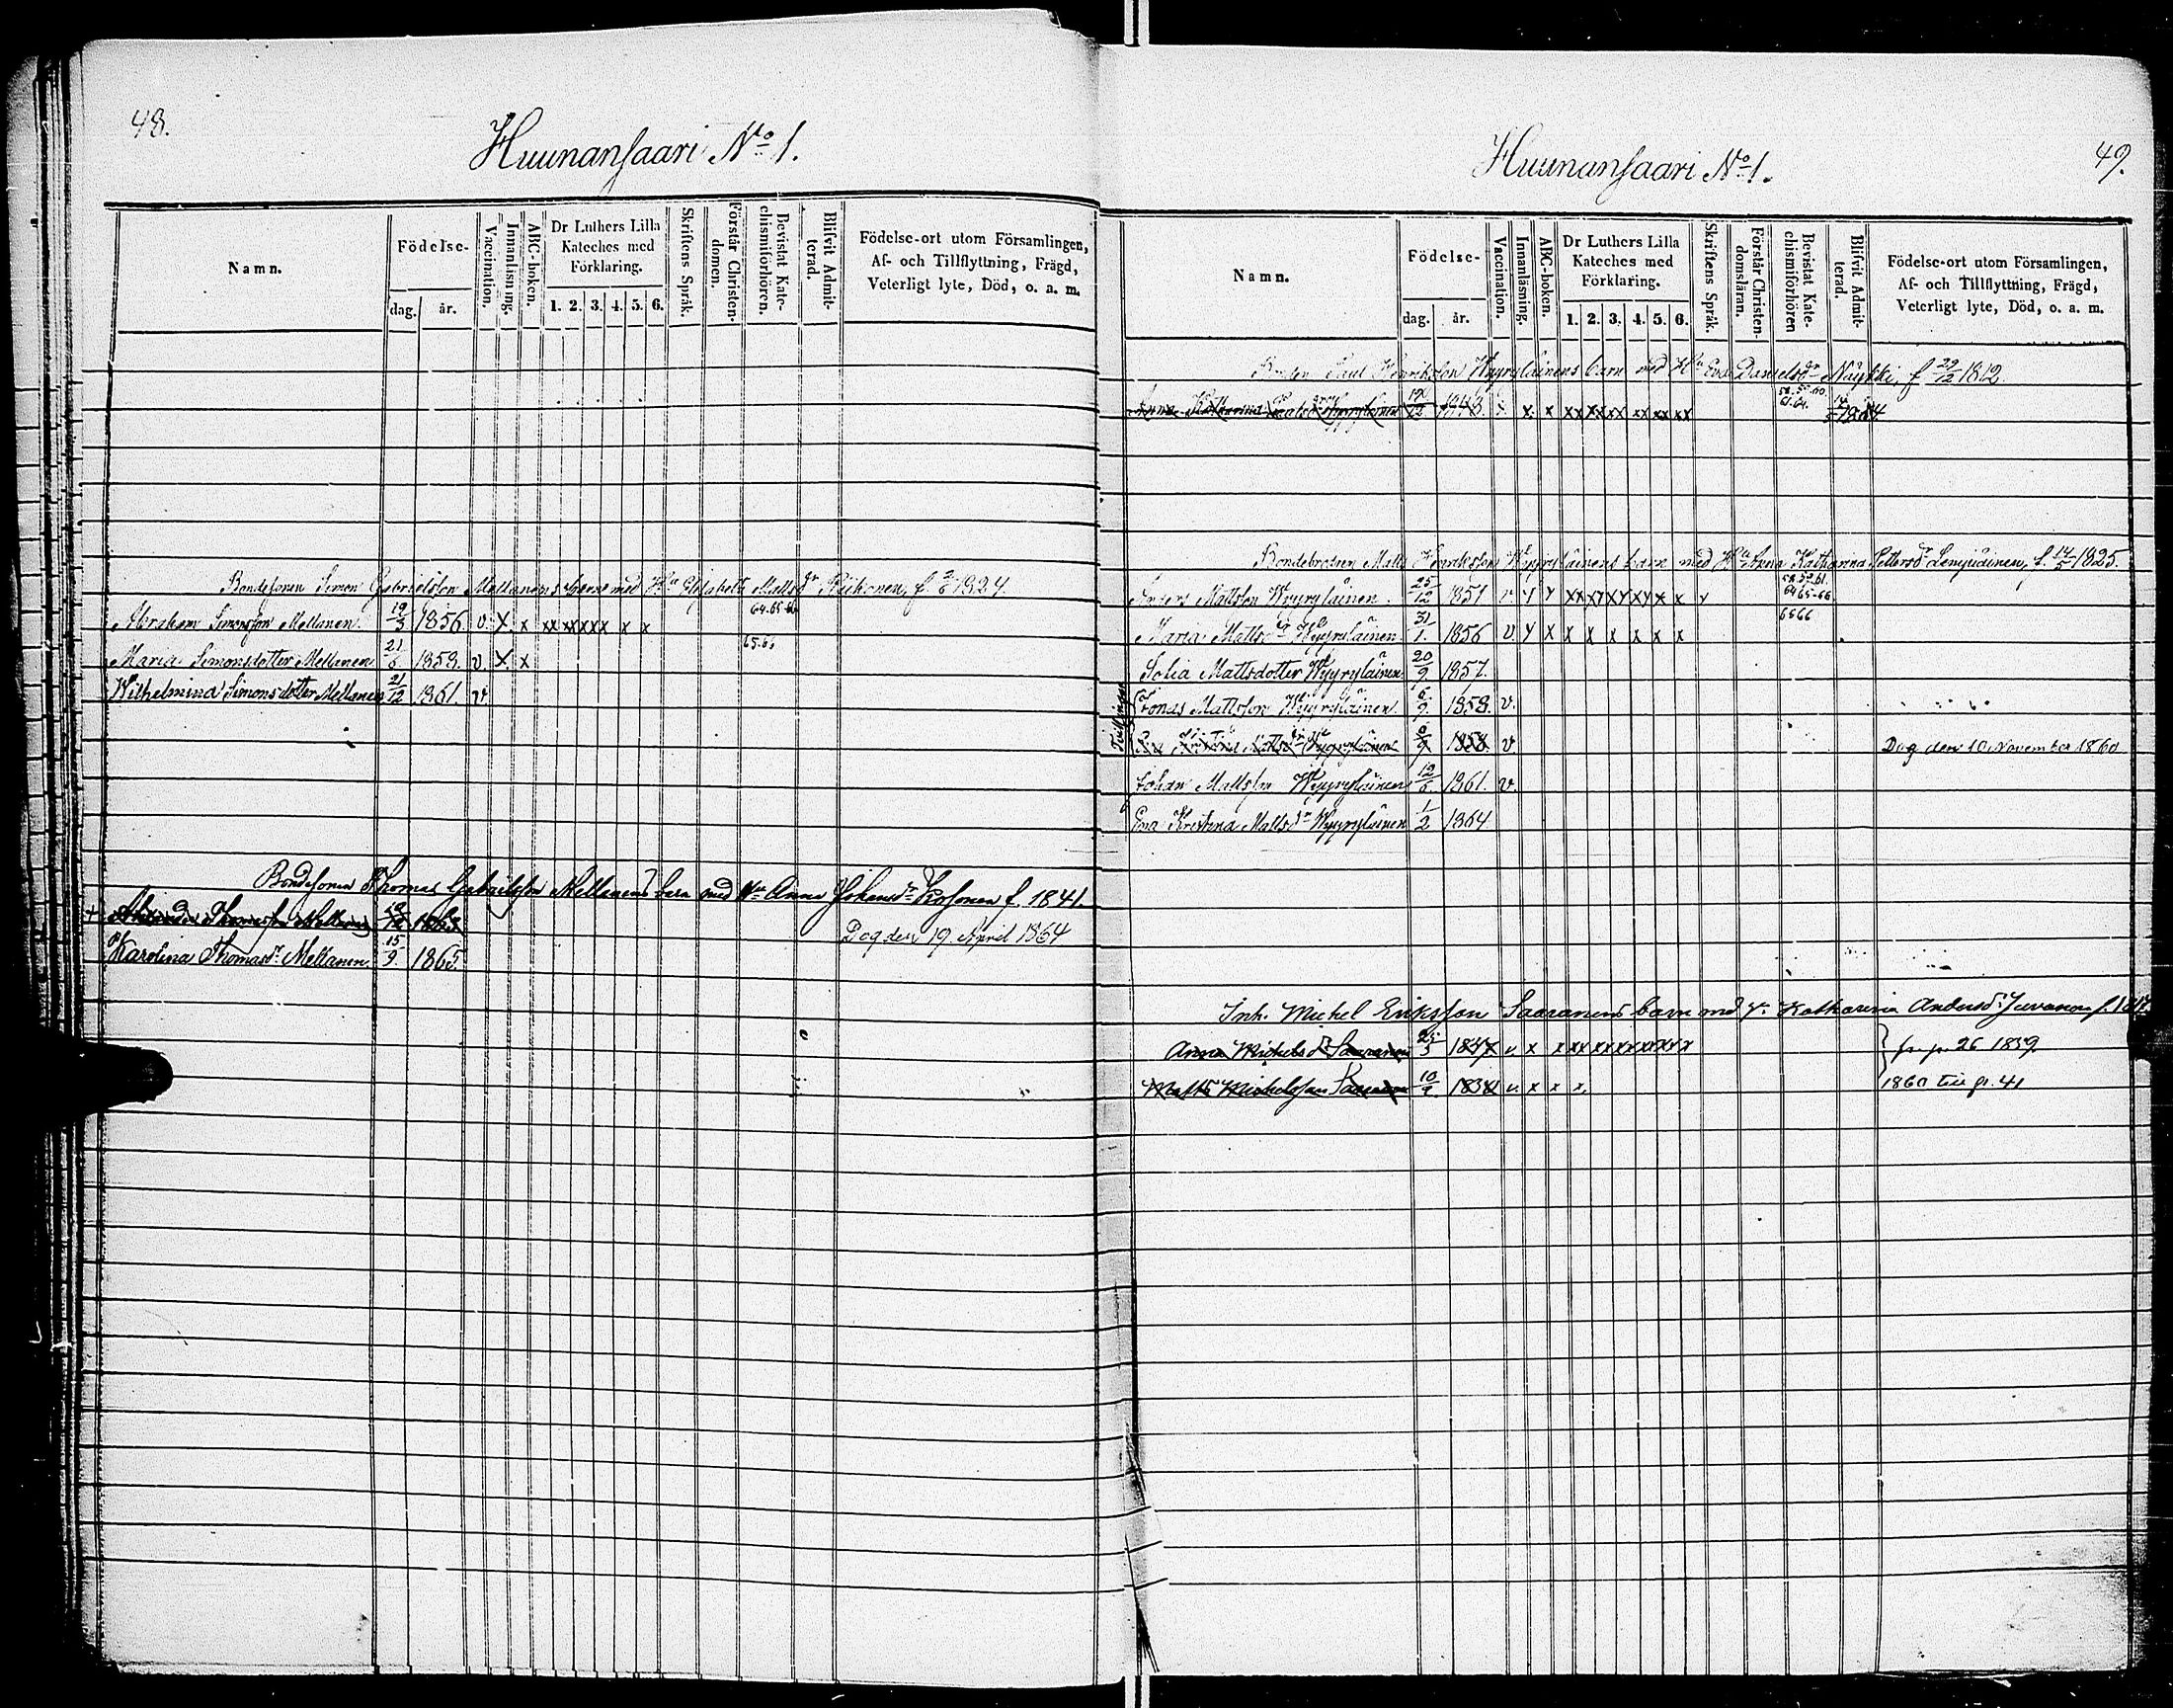 48.
Huunansaari No 1.
Namn.
Födelse-
dag.
år.
Vaccination.
Innanläsning.
ABC-boken.
Dr Luthers Lilla
Kateches med
Förklaring.
1. 2. 3. 4. 5. 6.
Skriftens Språk.
Förstår Christen-
domen.
Bevistat Kate-
chismiförhören.
Blifvit Admit-
terad.
Födelse-ort utom Församlingen,
Af- och Tillflyttning, Frägd,
Veterligt lyte, Död, o. a. m.
Bondesonen Simon Gabrielsson Mellanens barn med Hu Elisabeth Mattsdr 1824
Abraham Simonsson Mellanen 19/3 1856. v. X. x xx xx xx x x x 64.65.66
Maria Simonsdotter Mellanen 1858. v. X. x 65.66
Wilhelmina Simonsdotter Mellanen 21/12 1861. v.
Bondesonen Thomas Gabrielsson Mellanens barn med Hu Anna Johansdr Kosonen f. 1841.
+ Thomasson Mellanen
Dog den 19 April 1864
Karolina Thomasdr Mellanen. 15/9. 1865.
49.
Huunansaari No 1.
Namn.
Födelse-
dag.
år.
Vaccination.
Innanläsning.
ABC-boken.
Dr Luthers Lilla
Kateches med
Förklaring.
1. 2. 3. 4. 5. 6.
Skriftens Språk.
Förstår Christen-
domsläran.
Bevistat Kate-
chismiförhören
Blifvit Admit-
terad.
Födelse-ort utom Församlingen,
Af- och Tillflyttning, Frägd,
Veterligt lyte, Död, o. a. m.
Bonden Paul Henriksson Wyyryläinens barn med Hu Eva Danielsdr Näykki, f 29/12 1812.
Anna Katharina Wyyryläinen 12 1848. x x xx xx xx xx xx xx 1864
Bondebrodren Matts Henriksson Wyyryläinens barn med Hu Anna Katharina Pettersdr f. 1825.
58.59.61.
Anders Mattsson Wyyryläinen. 25/12 1851 v. 64 65-66
Maria Mattsdr Wyyryläinen 31/1. 1856 v. x x x x x x x 65 66
Sofia Mattsdotter Wyyryläinen 20/9 1857.
Jonas Mattsson Wyyryläinen. 6/9. 1858. v.
Mattsdr Wyyryläinen 6/9 1858. v Dog den 10 November 1860
Johan Mattsson Wyyryläinen 12/6 1861. v.
Eva Kristina Mattsdr Wyyryläinen 1/2 1864.
Inh. Michel Eriksson Saaranens barn med Hu Katharina Andersdr Juvanen f.
Anna Michelsdr Saaranen 1847 v. x x xx xx xx xx xx xx fr. p. 26 1859.
Matts Michelsson Saaranen 10/9. v. x x x. 1860 till p. 41